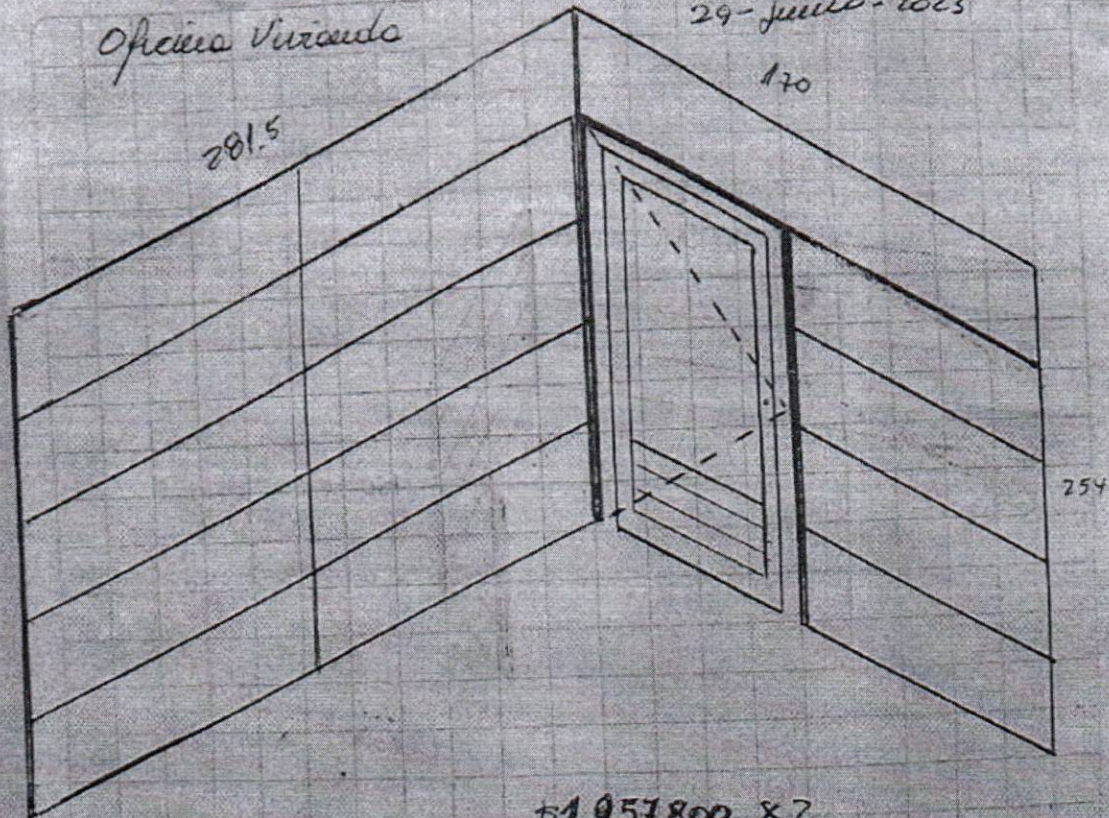 Oficina Vivienda
29-Junio-2023
170
281.5
254
$1.957.800 x2